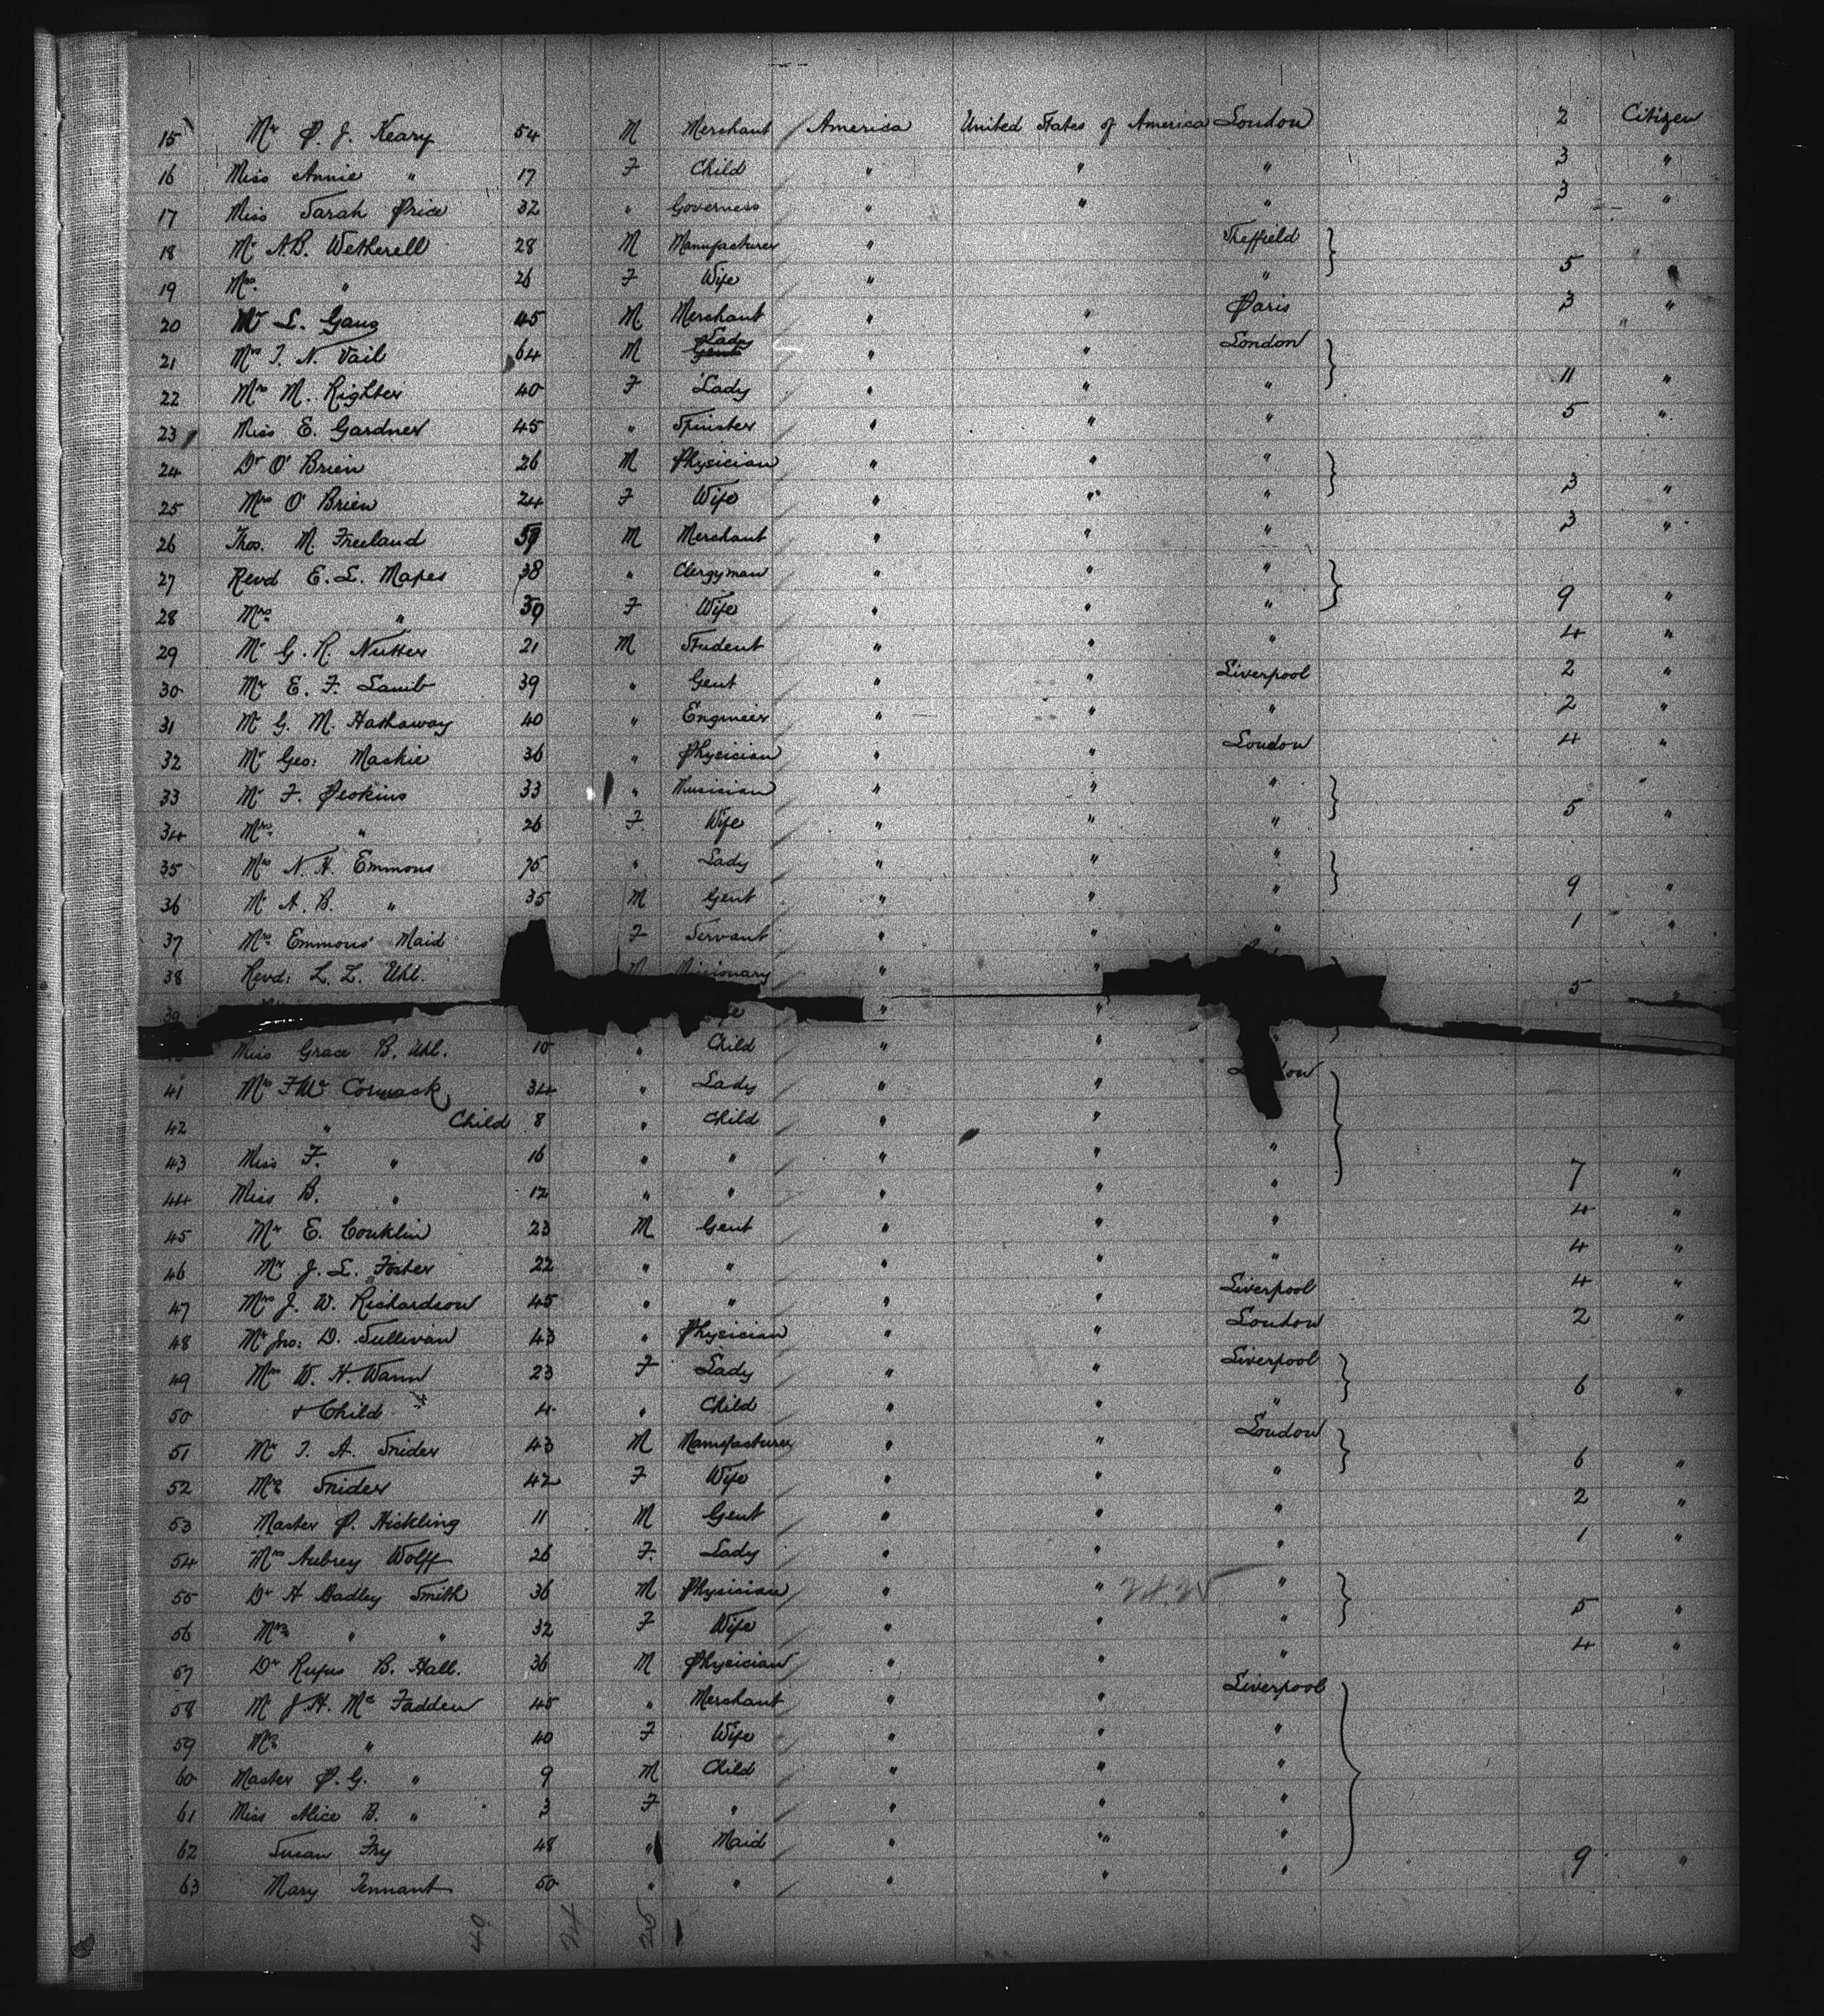 15 Mr P. J. Keary 54 M Merchant America United States of America London 2 Citizen
16 Miss Annie " 17 F Child " " " 3 "
17 Miss Sarah Price 32 " Governess " " " 3 "
18 Mr A.B. Wetherell 28 M Manufacturer " Sheffield
19 Mrs " 26 F Wife " " 5 "
20 Mr L. Gans 45 M Merchant " " Paris 3 "
21 Mrs I. N. Vail 64 M Lady " " London
22 Mrs M. Righter 40 F Lady " " " 11 "
23 Miss E. Gardner 45 " Spinster " " " 5 "
24 Dr O'Brien 26 M Physician " " "
25 Mrs O'Brien 24 F Wife " " " 3 "
26 Thos. M. Freeland 59 M Merchant " " " 3 "
27 Revd E. L. Mapes 38 " Clergyman " " "
28 Mrs " 39 F Wife " " " 9 "
29 Mr G. R. Nutter 21 M Student " " " 4 "
30 Mr E. F. Lamb 39 " Gent " " Liverpool 2 "
31 Mr G. M. Hathaway 40 " Engineer " " " 2 "
32 Mr Geo: Mackie 36 " Physician " " London 4 "
33 Mr F. Perkins 33 " Musician " " "
34 Mrs " 26 F Wife " " " 5 "
35 Mrs N. H. Emmons 75 " Lady " " "
36 Mr A. B. " 35 M Gent " " " 9 "
37 Mrs Emmons' Maid F Servant " " " 1 "
38 Revd: L. L. Uhl. M Missionary " " 5 "
39 " "
Miss Grace B. Uhl. 10 " Child " " "
41 Mrs F Mc Cormack 34 " Lady " "
42 " Child 8 " Child " "
43 Miss F. " 16 " " " " "
44 Miss B. " 12 " " " " " 7 "
45 Mr E. Conklin 23 M Gent " " " 4 "
46 Mr J. L. Foster 22 " " " " " 4 "
47 Mrs J. W. Richardson 45 " " " " Liverpool 4 "
48 Mr Jno: D. Sullivan 43 " Physician " " London 2 "
49 Mrs W. H. Wann 23 F Lady " " Liverpool
50 & Child 4 " Child " " " 6 "
51 Mr T. A. Snider 43 M Manufacturer " " London
52 Mrs Snider 42 F Wife " " " 6 "
53 Master P. Hickling 11 M Gent " " " 2 "
54 Mrs Aubrey Wolff 26 F Lady " " " 1 "
55 Dr H Badley Smith 36 M Physician " " "
56 Mrs " " 32 F Wife " " " 5 "
57 Dr Rufus B. Hall. 36 M Physician " " " 4 "
58 Mr J. H. Mc Fadden 45 " Merchant " " Liverpool
59 Mrs " 40 F Wife " " "
60 Master P. G. " 9 M Child " " "
61 Miss Alice B. " 3 F " " " "
62 Susan Fry 48 " Maid " " "
63 Mary Tennant 50 " " " " " 9 "